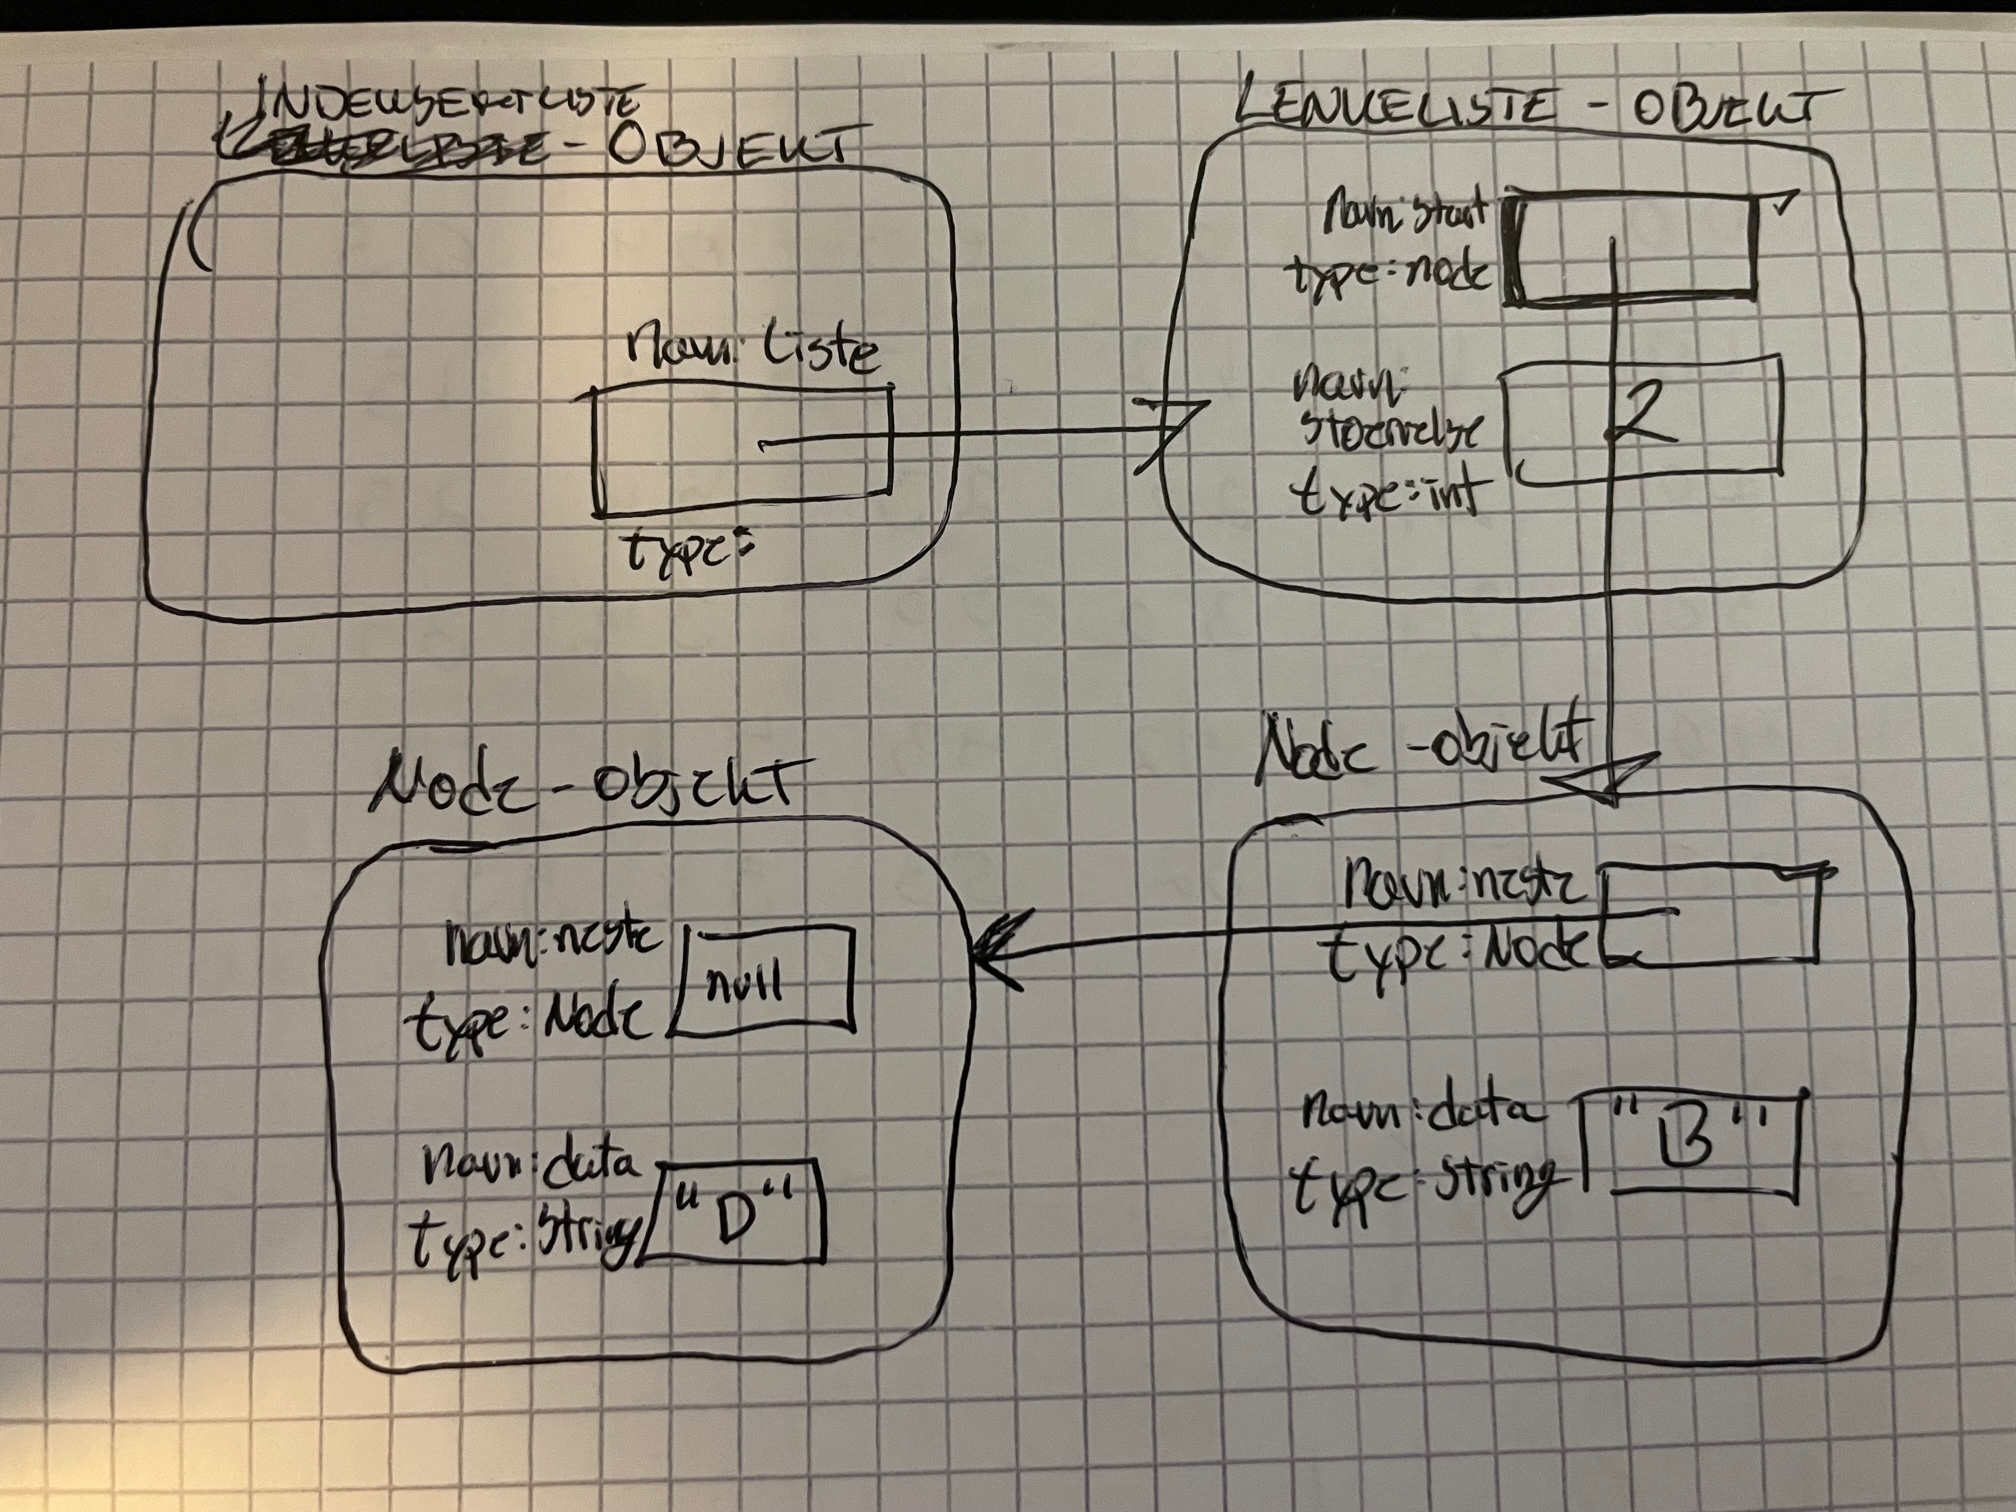 INDEKSERTLISTE
- OBJEKT
Navn: Liste
type:
LENKELISTE - OBJEKT
Navn: start
type: node
navn:
stoerrelse
type: int
2
Node - objekt
navn: neste
type: Node
null
navn: data
type: String
"D"
Node - objekt
navn: neste
type: Node
navn: data
type: String
"B"